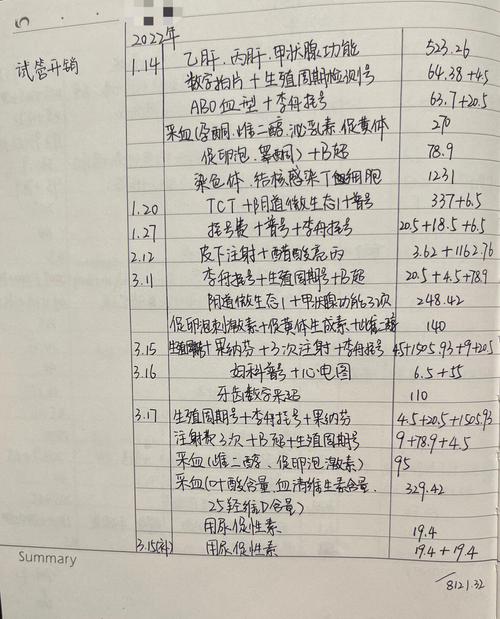 2022年
试管开销
1.14 乙肝、丙肝、甲状腺功能 523.26
数字拍片+生殖周期检测号 64.38+4.5
ABO血型+李舟挂号 63.7+20.5
采血(孕酮、雌二醇、泌乳素、促黄体 270
促卵泡、睾酮)+B超 78.9
染色体、结核感染T细胞 1231
1.20 TCT+阴道微生态1+普号 337+6.5
1.27 挂号费+普号+李舟挂号 20.5+18.5+6.5
2.12 皮下注射+醋酸亮丙 3.62+1162.76
3.11 李舟挂号+生殖周期号+B超 20.5+4.5+78.9
阴道微生态1+甲状腺功能3次 248.42
促卵泡刺激素+促黄体生成素+雌二醇 140
3.15 生殖周期+果纳芬+3次注射+李舟挂号 4.5+1505.93+9+20.5
3.16 妇科普号+心电图 6.5+55
牙齿数字采码 110
3.17 生殖周期号+李舟挂号+果纳芬 4.5+20.5+1505.93
注射费3次+B超+生殖周期号 9+78.9+4.5
采血(雌二醇、促卵泡激素) 95
采血(叶酸含量、血清维生素含量、 329.42
25羟维D含量)
用尿促性素 19.4
3.15(补) 用尿促性素 19.4+19.4
Summary
8121.32